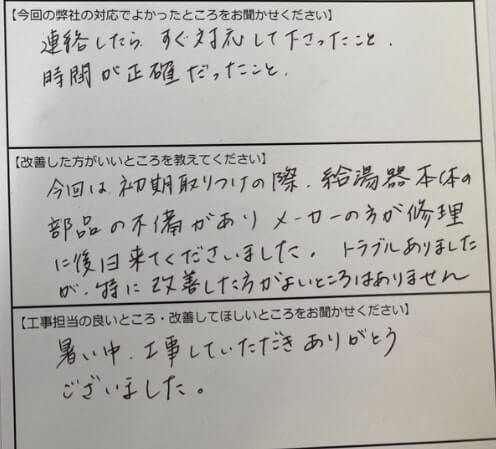 【今回の弊社の対応でよかったところをお聞かせください】
連絡したら、すぐ対応して下さったこと.
時間が正確だったこと.
【改善した方がいいところを教えてください】
今回は初期取りつけの際、給湯器本体の
部品の不備がありメーカーの方が修理
に後日来てくださいました。トラブルありました
が、特に改善した方がよいところはありません
【工事担当の良いところ・改善してほしいところをお聞かせください】
暑い中、工事していただきありがとう
ございました。